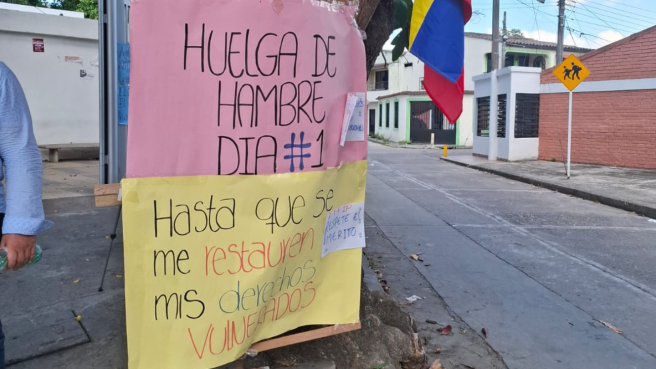 HUELGA DE
HAMBRE
DIA #1
Hasta que se
me restauren
mis derechos
VULNERADOS
RESPETE EL
MERITO